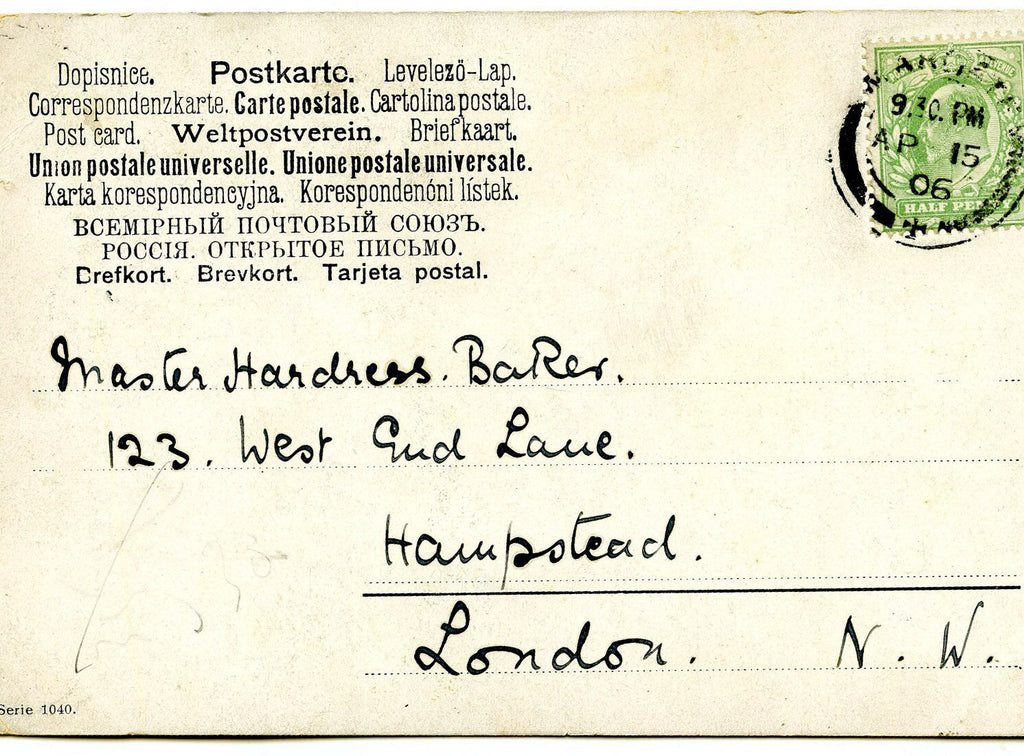 Dopisnice. Postkarte. Levelező-Lap.
Correspondenzkarte. Carte postale. Cartolina postale.
Post card. Weltpostverein. Briefkaart.
Union postale universelle. Unione postale universale.
Karta korespondencyjna. Korespondenční lístek.
ВСЕМІРНЫЙ ПОЧТОВЫЙ СОЮЗЪ.
РОССІЯ. ОТКРЫТОЕ ПИСЬМО.
Brefkort. Brevkort. Tarjeta postal.
9.30. PM
AP 15
06
HALF PENNY
Master Hardress. Baker.
123. West End Lane.
Hampstead.
London. N. W.
Serie 1040.